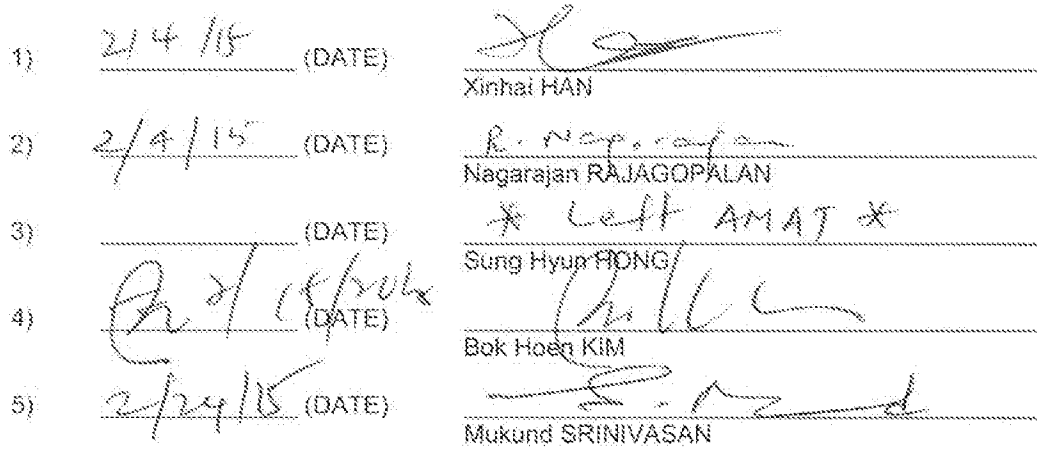 1) 2/4/15 (DATE)
Xinhai HAN
2) 2/4/15 (DATE) R. Nagarajan
Nagarajan RAJAGOPALAN
3) (DATE) * Left AMAT *
Sung Hyun HONG
4) (DATE)
Bok Hoen KIM
5) 2/24/15 (DATE)
Mukund SRINIVASAN